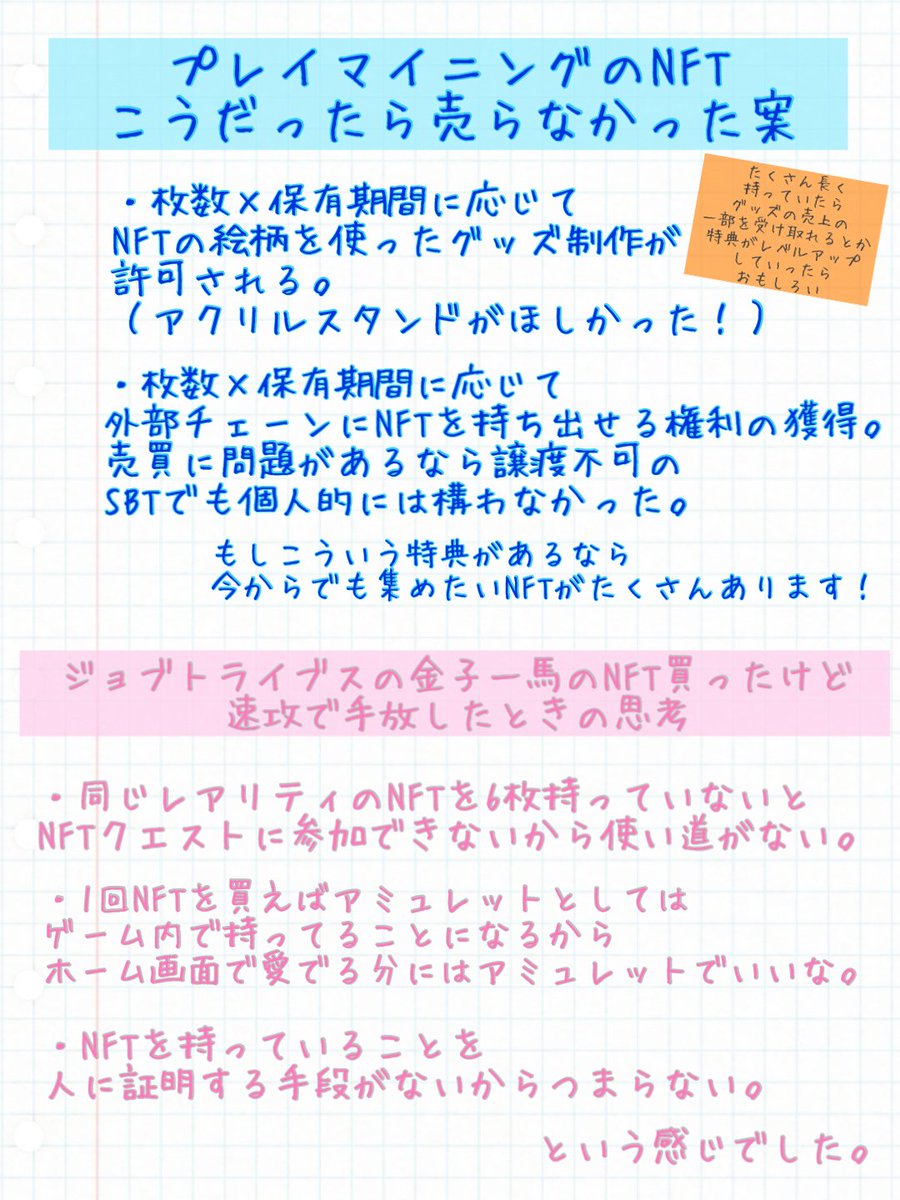 プレイマイニングのNFT
こうだったら売らなかった案
・枚数×保有期間に応じて
NFTの絵柄を使ったグッズ制作が
許可される。
（アクリルスタンドがほしかった！）
たくさん長く
持っていたら
グッズの売上の
一部を受け取れるとか
特典がレベルアップ
していったら
おもしろい
・枚数×保有期間に応じて
外部チェーンにNFTを持ち出せる権利の獲得。
売買に問題があるなら譲渡不可の
SBTでも個人的には構わなかった。
もしこういう特典があるなら
今からでも集めたいNFTがたくさんあります！
ジョブトライブスの金子一馬のNFT買ったけど
速攻で手放したときの思考
・同じレアリティのNFTを6枚持っていないと
NFTクエストに参加できないから使い道がない。
・1回NFTを買えばアミュレットとしては
ゲーム内で持ってることになるから
ホーム画面で愛でる分にはアミュレットでいいな。
・NFTを持っていることを
人に証明する手段がないからつまらない。
という感じでした。